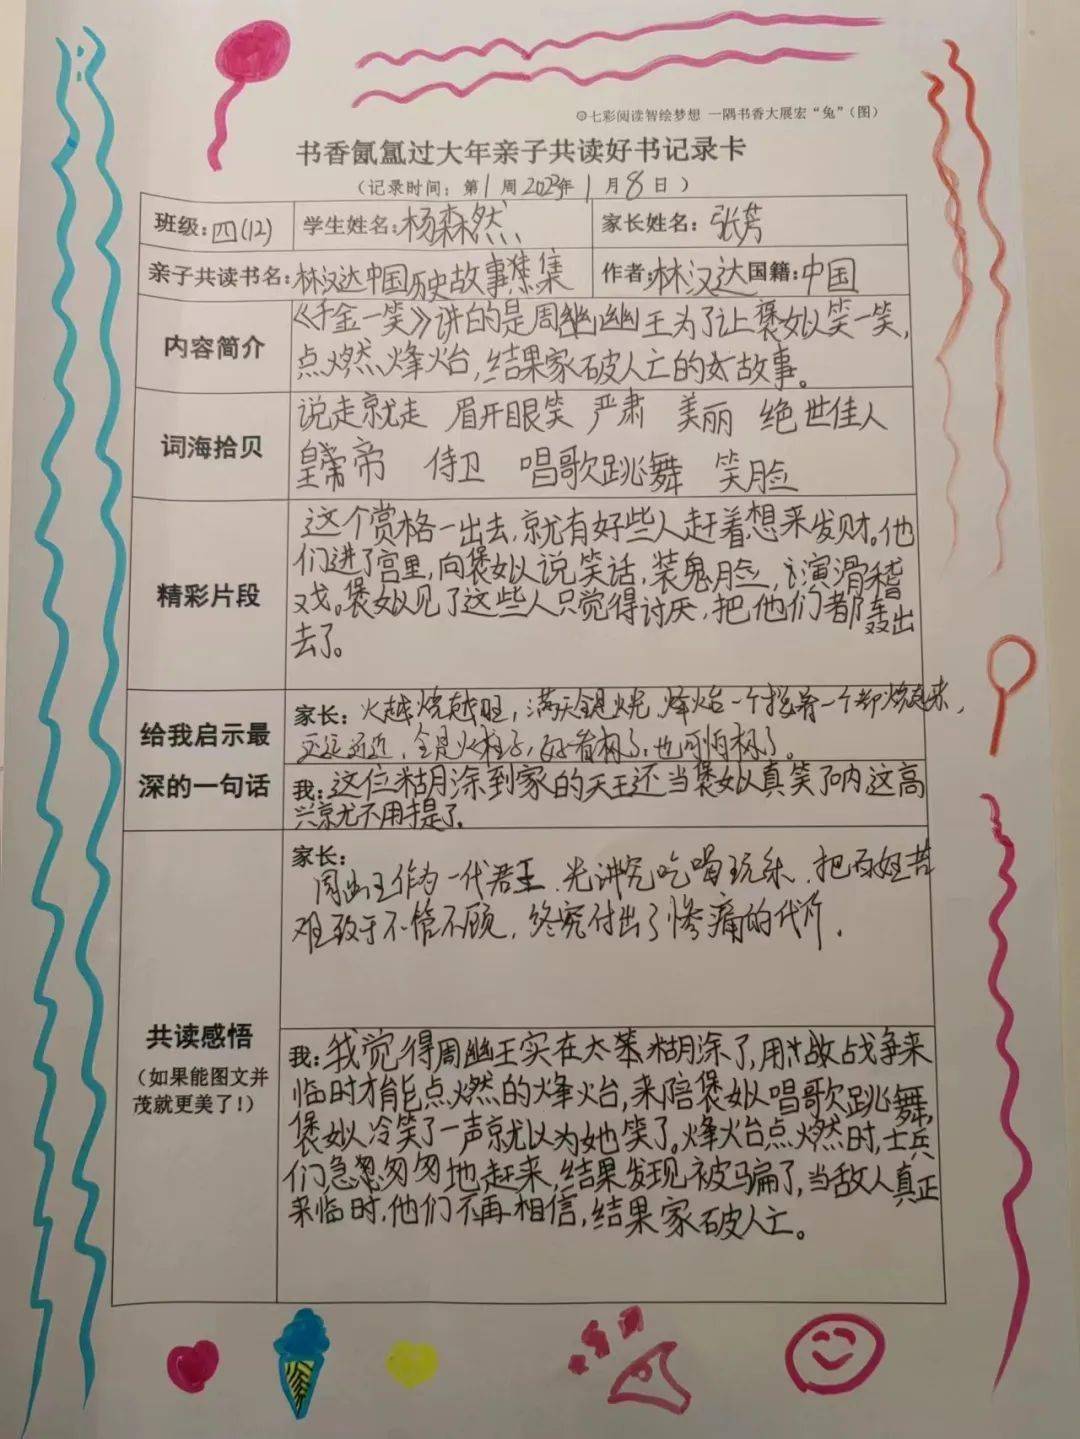 七彩阅读智绘梦想 一隅书香大展宏“兔”(图)
书香氤氲过大年亲子共读好书记录卡
(记录时间：第1周2023年1月8日)
班级：四(12) 学生姓名：杨森然 家长姓名：张芳
亲子共读书名：林汉达中国历史故事集 作者：林汉达 国籍：中国
内容简介
《千金一笑》讲的是周幽幽王为了让褒姒笑一笑，
点燃烽火台，结果家破人亡的故事。
词海拾贝
说走就走 眉开眼笑 严肃 美丽 绝世佳人
皇帝 侍卫 唱歌跳舞 笑脸
精彩片段
这个赏格一出去，就有好些人赶着想来发财。他
们进了宫里，向褒姒说笑话，装鬼脸，演滑稽
戏。褒姒见了这些人只觉得讨厌，把他们都轰出
去了。
给我启示最
深的一句话
家长：火越烧越旺，满天全是火光，烽火台一个接着一个都烧起来，
远远近近，全是火柱子，好看极了，也可怕极了。
我：这位糊涂到家的天王还当褒姒真笑了呐这高
兴就不用提了。
共读感悟
(如果能图文并
茂就更美了！)
家长：
周幽王作为一代君王，光讲究吃喝玩乐，把百姓苦
难致于不管不顾，终究付出了惨痛的代价.
我：我觉得周幽王实在太笨糊涂了，用战争来
临时才能点燃的烽火台，来陪褒姒唱歌跳舞，
褒姒冷笑了一声就以为她笑了。烽火台点燃时，士兵
们急忽匆匆地赶来，结果发现被骗了，当敌人真正
来临时，他们不再相信，结果家破人亡。